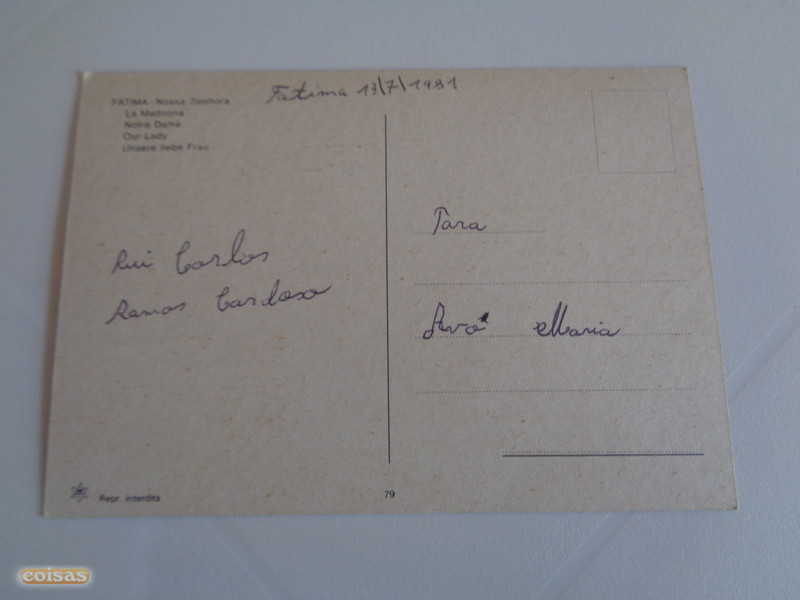 Fatima 13/7/1981
FÁTIMA - Nossa Senhora
La Madoona
Notre Dame
Our Lady
Unsere liebe Frau
Rui Carlos
Ramos Cardoso
Para
Avó Maria
Repr. interdita
79
coisas